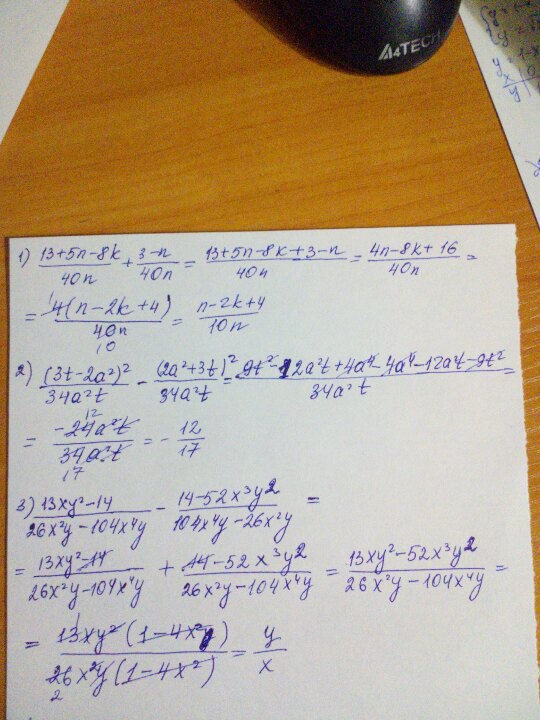 A4TECH
1) (13+5n-8k)/(40n) + (3-n)/(40n) = (13+5n-8k+3-n)/(40n) = (4n-8k+16)/(40n) =
= (4(n-2k+4))/(40n) = (n-2k+4)/(10n)
2) ((3t-2a²)²)/(34a²t) - ((2a²+3t)²)/(34a²t) = (9t²-12a²t+4a⁴-4a⁴-12a²t-9t²)/(34a²t) =
= (-24a²t)/(34a²t) = -12/17
3) (13xy²-14)/(26x²y-104x⁴y) - (14-52x³y²)/(104x⁴y-26x²y) =
= (13xy²-14)/(26x²y-104x⁴y) + (14-52x³y²)/(26x²y-104x⁴y) = (13xy²-52x³y²)/(26x²y-104x⁴y) =
= (13xy²(1-4x²))/(26x²y(1-4x²)) = y/x